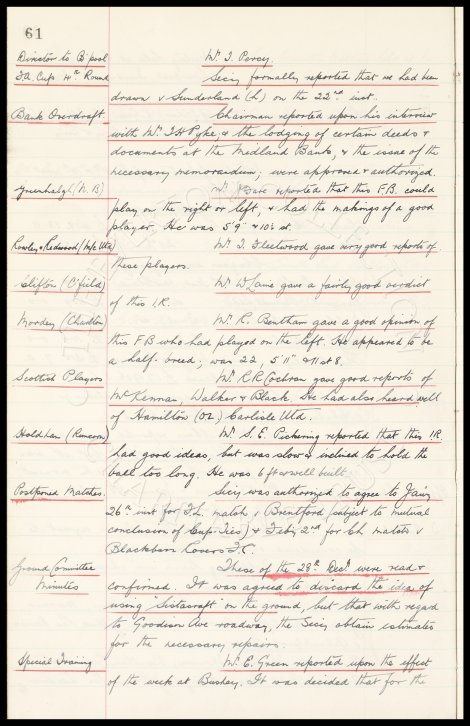 61
Director to B'pool Mr. J. Percy.
F.A. Cup 4th Round Secy formally reported that we had been
drawn v Sunderland (h) on the 22nd inst.
Bank Overdraft Chairman reported upon his interview
with Mr. & the lodging of certain deeds &
documents at the Midland Bank, & the issue of the
necessary memorandum, were approved & authorized.
Greenhalgh (N. B) Mr. J. Bare reported that this F.B. could
play on the right or left, & had the makings of a good
player. He was 5'9" & 10½ st.
Rowley & Redwood (M/c Utd) Mr. J. Fleetwood gave very good reports of
these players.
Clifton (C'field) Mr. W Lane gave a fairly good verdict
of this I.R.
Mordey (Charlton) Mr. R. Bentham gave a good opinion of
this F.B who had played on the left. He appeared to be
a half-breed; was 22, 5'11" & 11 st 8.
Scottish Players Mr. R.R Cochran gave good reports of
McKennan, Walker & Black. He had also heard well
of Hamilton (O.L.) Carlisle Utd.
Holdham (Runcorn) Mr. S. E. Pickering reported that this I.R.
had good ideas, but was slow & inclined to hold the
ball too long. He was 6 ft & well built.
Postponed Matches. Secy was authorized to agree to Jan'y
26th inst for F.L. match v Brentford (subject to mutual
conclusion of Cup-Ties) & Feb'y 2nd for Ch. match v
Blackburn Rovers F.C.
Ground Committee These of the 28th Dec'r were read &
Minutes confirmed. It was agreed to discard the idea of
using "Sistacraft" on the ground, but that with regard
to Goodison Ave roadway, the Secy obtain estimates
for the necessary repairs.
Special Training Mr. E. Green reported upon the effect
of the week at Bushey. It was decided that for the